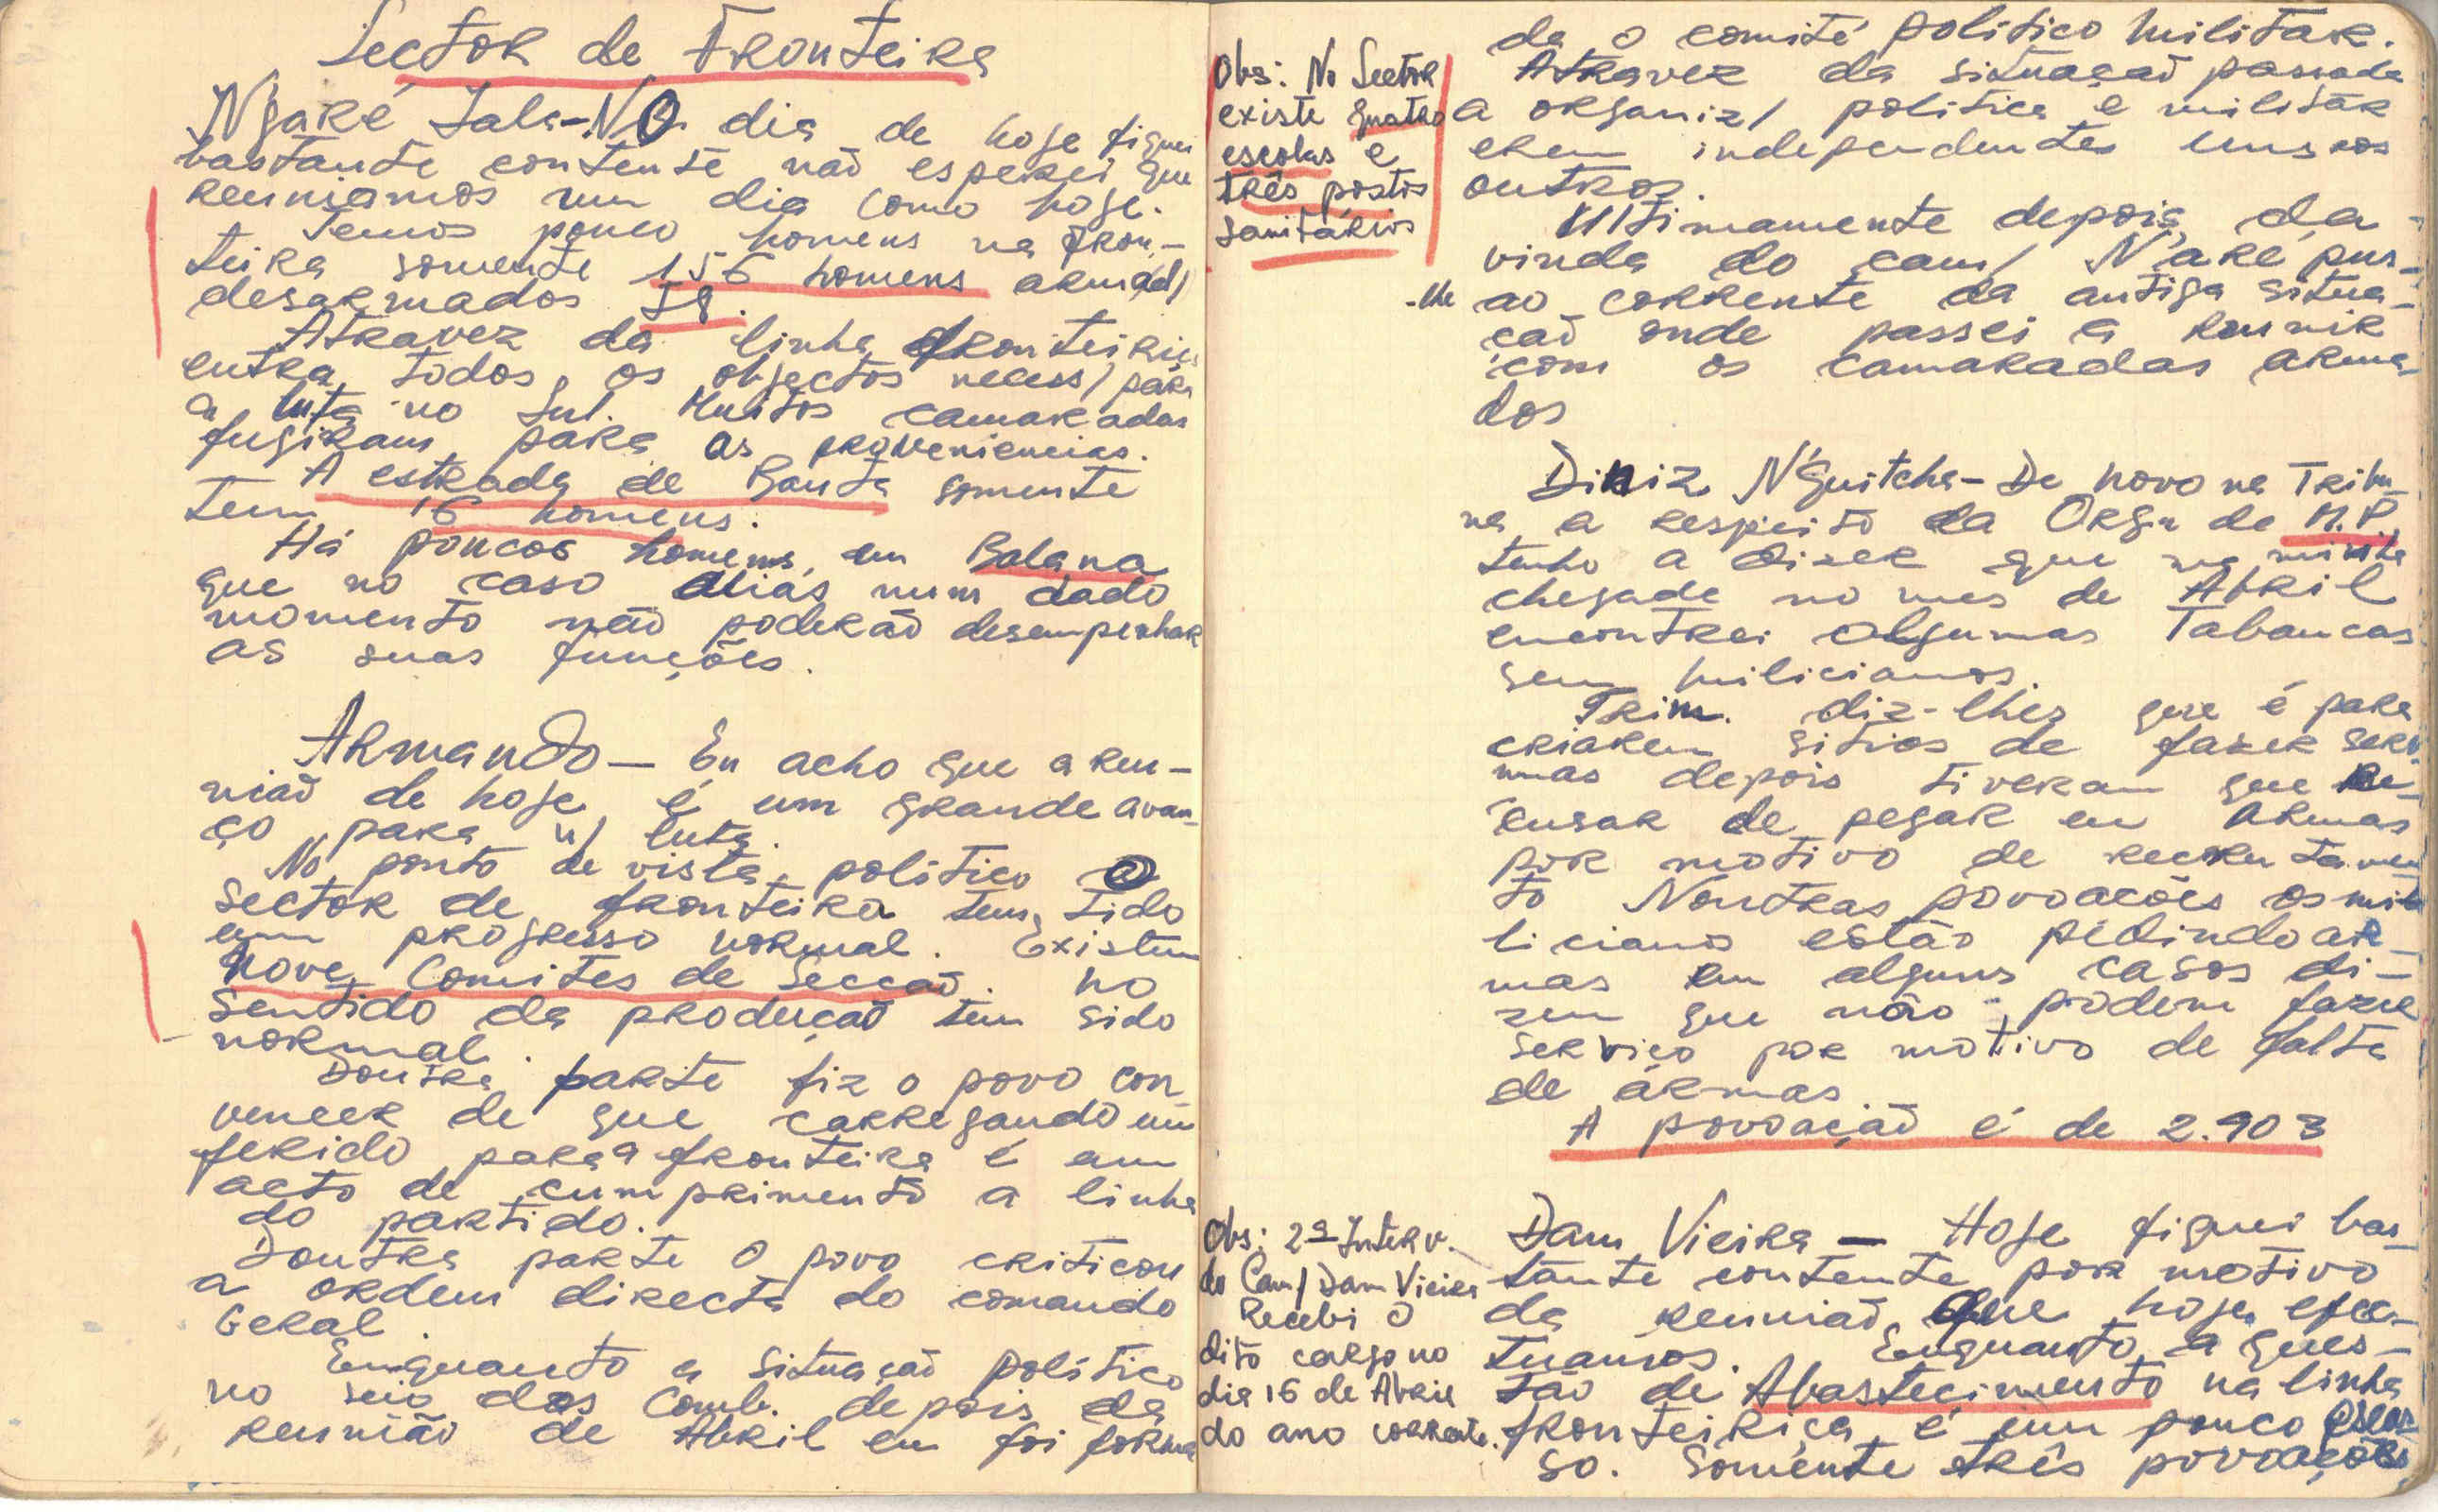 Sector de Fronteira
N'Garé Iala-NO dia de hoje fiquei
bastante contente não esperei que
reuniamos num dia como hoje.
Temos pouco homens na fron-
teira somente 156 homens armad/
desarmados 58.
Atravez da linha fronteiriça
entra todos os objectos necess/ para
a luta no Sul. Muitos camaradas
fugiram para as proveniencias.
A estrada de Banta somente
tem 16 homens.
Há poucos homens em Balana
que no caso aliás num dado
momento não poderão desempenhar
as suas funções.
Armando - Eu acho que a reu-
nião de hoje é um grande avan-
ço para n/ luta.
No ponto de vista politico o
sector de fronteira tem tido
um progresso normal. Existem
nove Comites de Secção. no
sentido da produção tem sido
normal.
Doutra parte fiz o povo con
vencer de que carregando um
ferido para a fronteira é um
acto de cumprimento a linha
do partido.
Doutra parte o povo criticou
a ordem directa do comando
Geral.
Enquanto a situação politico
no seio dos Comb. depois da
reunião de Abril em foi forma
da o comité politico militar.
Obs: No Sector
existe quatro
escolas e
três postos
sanitários
Atravez da situação passada
a organiz/ politica e militar
eram independentes uns nos
outros.
Ultimamente depois da
vinda do cam/ N'aré pus-
-me ao corrente da antiga situa-
ção onde passei a reunir
com os camaradas arma-
dos
Diniz N'Guitcha - De novo na Tribu-
na a respeito da Orgn de M.P.
tenho a dizer que na minha
chegada no mes de Abril
encontrei algumas Tabancas
sem milicianos.
Trim. diz-lhes que é para
criarem sitios de fazer serv.
mas depois tiveram que re-
cusar de pegar em armas
por motivo de recrutamen
to Noutras povoações os mili
licianos estão pedindo ar-
mas em alguns casos di-
zem que não podem fazer
serviço por motivo de falta
de armas
A povoação é de 2.903
Obs: 2ª Interv.
do Cam/ Dam Vieira
Recebi o
dito cargo no
dia 16 de Abril
do ano corrente.
Dam Vieira - Hoje fiquei bas-
tante contente por motivo
da reunião que hoje efec-
tuamos. Enquanto a ques-
tão de Abastecimento na linha
fronteiriça é um pouco escas
so. Somente três povoações